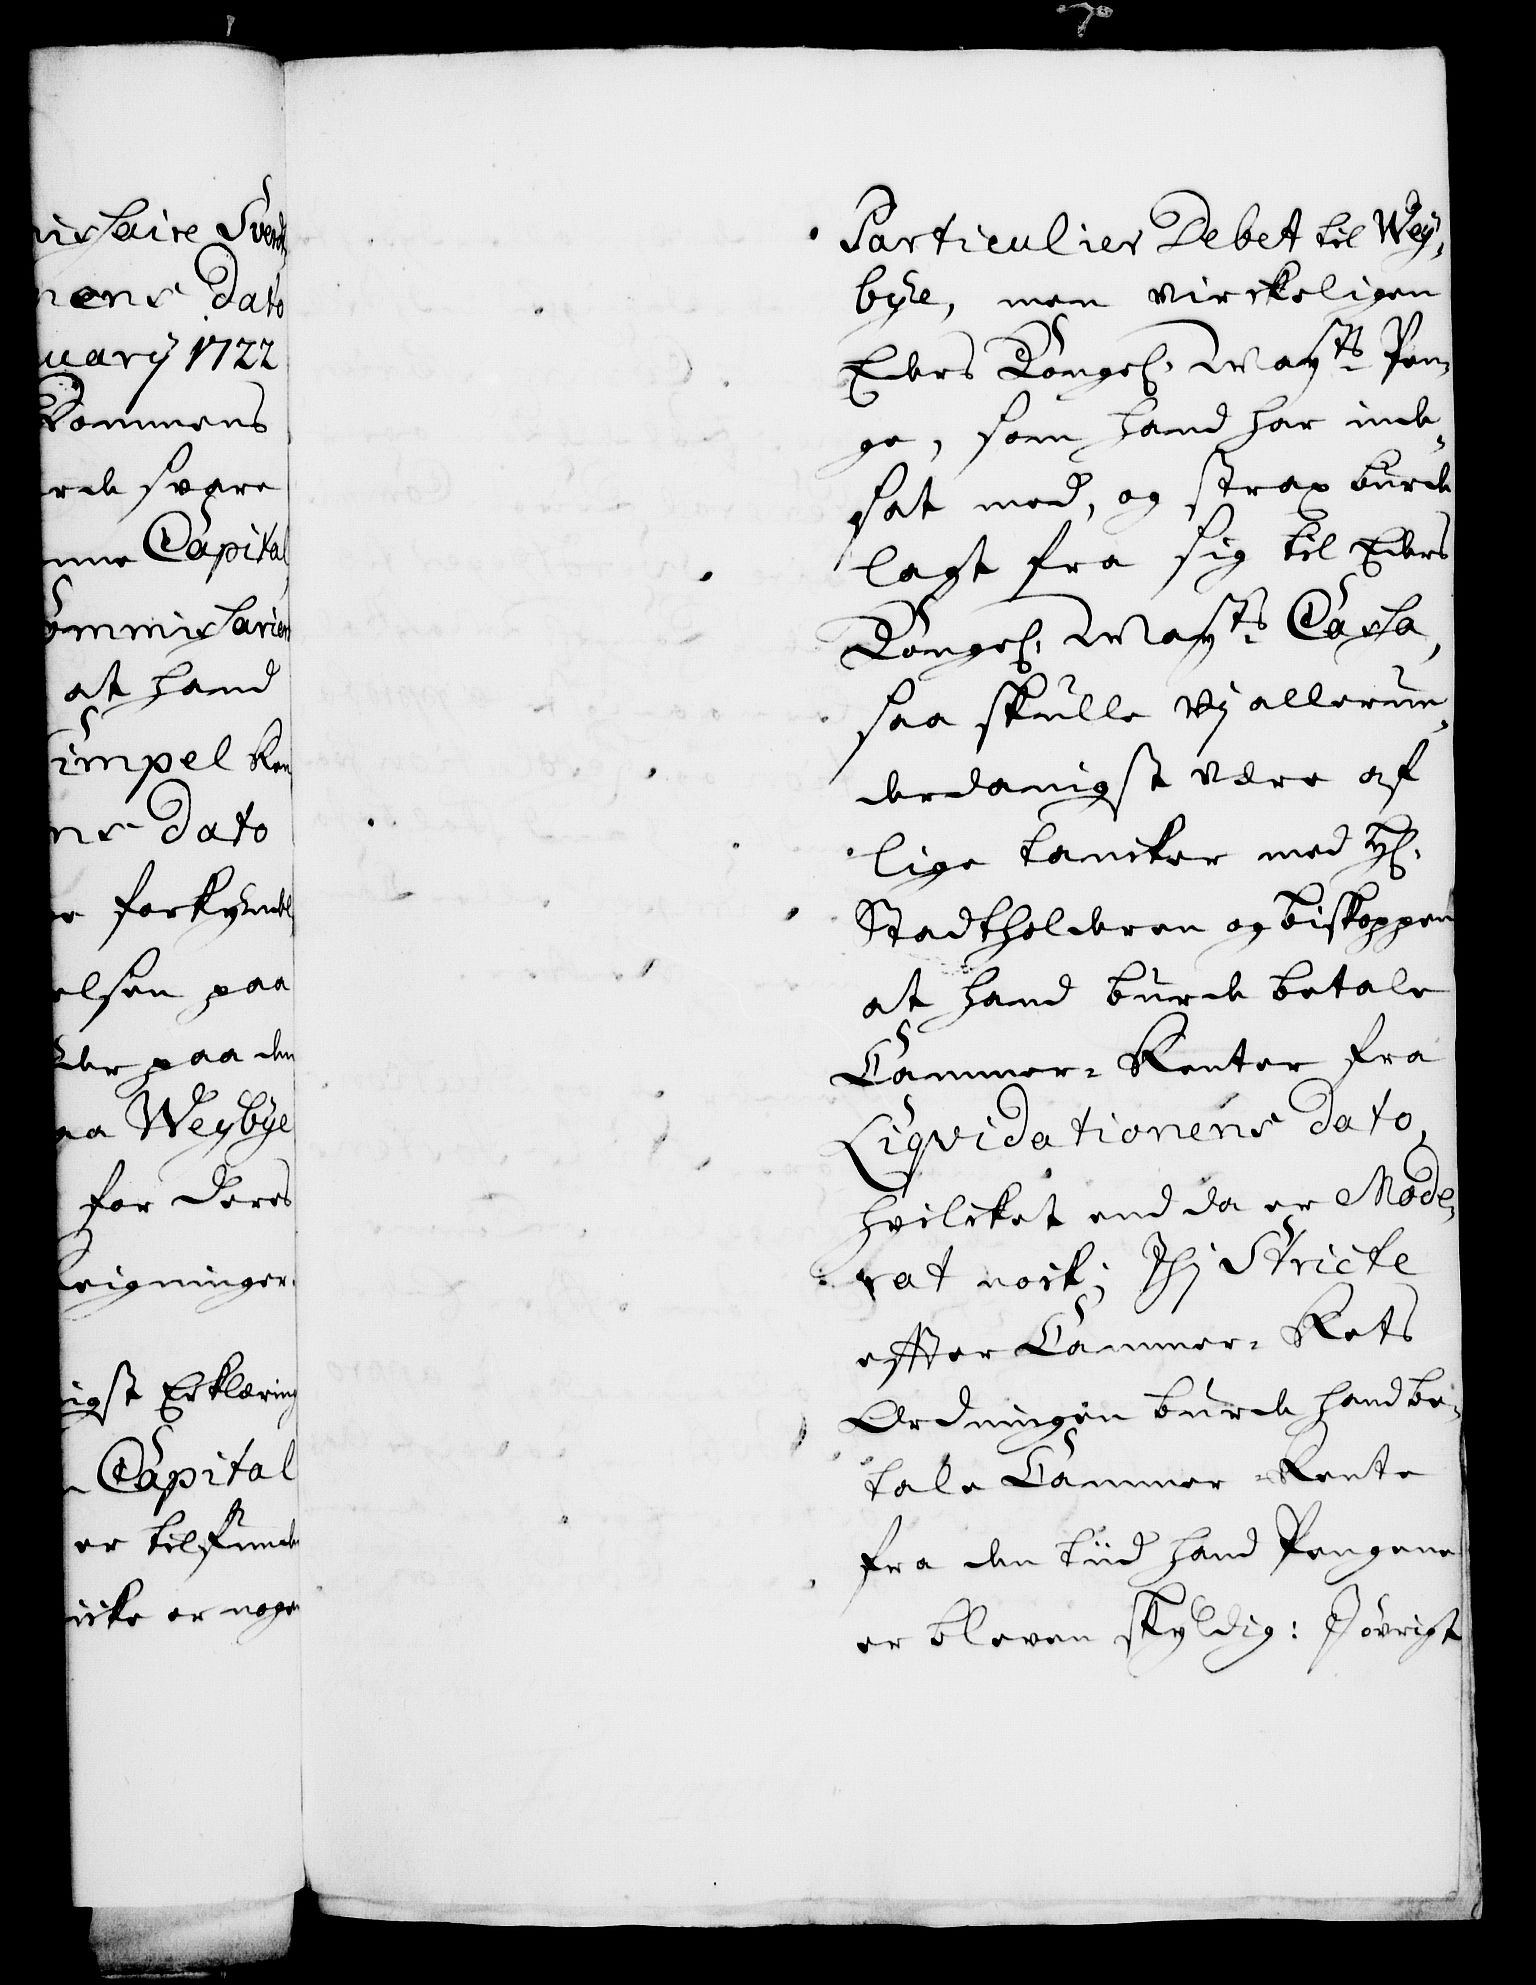 missaire Sverd
nens Dato
uarij 1722
kommens
rde svare
nne Capital
ommissarien
at hand
Simpel Ren
ns Dato
e forkyndel
elsen paa
der paa den
aa Weybye
for deres
reigninger.
igst Erklæring
n Capital
er tilfunde
icke er noge
Particulier Debet til Wey,
bye, men virckeligen
Eders Kongel: Mayts Pen,
ge, som hand har inde,
sat med, og strax burde
lagt fra sig til Eders
Kongel: Mayts Cassa,
saa skulle vj allerun,
derdanigst være af
lige tancker med H:
Stadtholderen og biskoppen
at hand burde betale
Cammer-Renter fra
Liqvidationens Dato,
hvilcket end da er Mode,
rat nock; Thj Stricte
effter Cammer-Rets
Ordningen burde hand be,
tale Cammer-Rente
fra den tiid hand Pengene
er bleven skyldig: J øvrigt